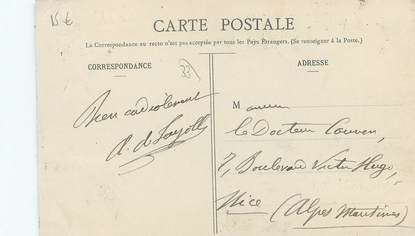 15 €
CARTE POSTALE
La Correspondance au recto n'est pas acceptée par tous les Pays Étrangers. (Se renseigner à la Poste.)
CORRESPONDANCE
33
Bien cordialement
A. de
ADRESSE
Monsieur
le Docteur
7, Boulevard Victor Hugo,
Nice (Alpes Maritimes)